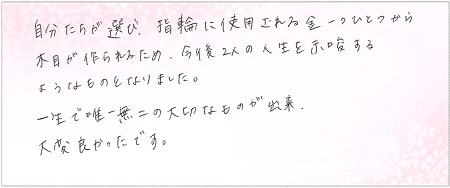 自分たちが選び、指輪に使用される金一つひとつから
木目が作られるため、今後2人の人生を示唆する
ようなものとなりました。
一生で唯一無二の大切なものが出来、
大変良かったです。